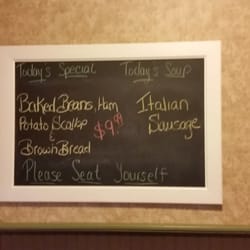 Today's Special
Today's Soup
Baked Beans, Ham
Potato Scallop
&
Brown Bread
$9.99
Italian
Sausage
Please Seat Yourself